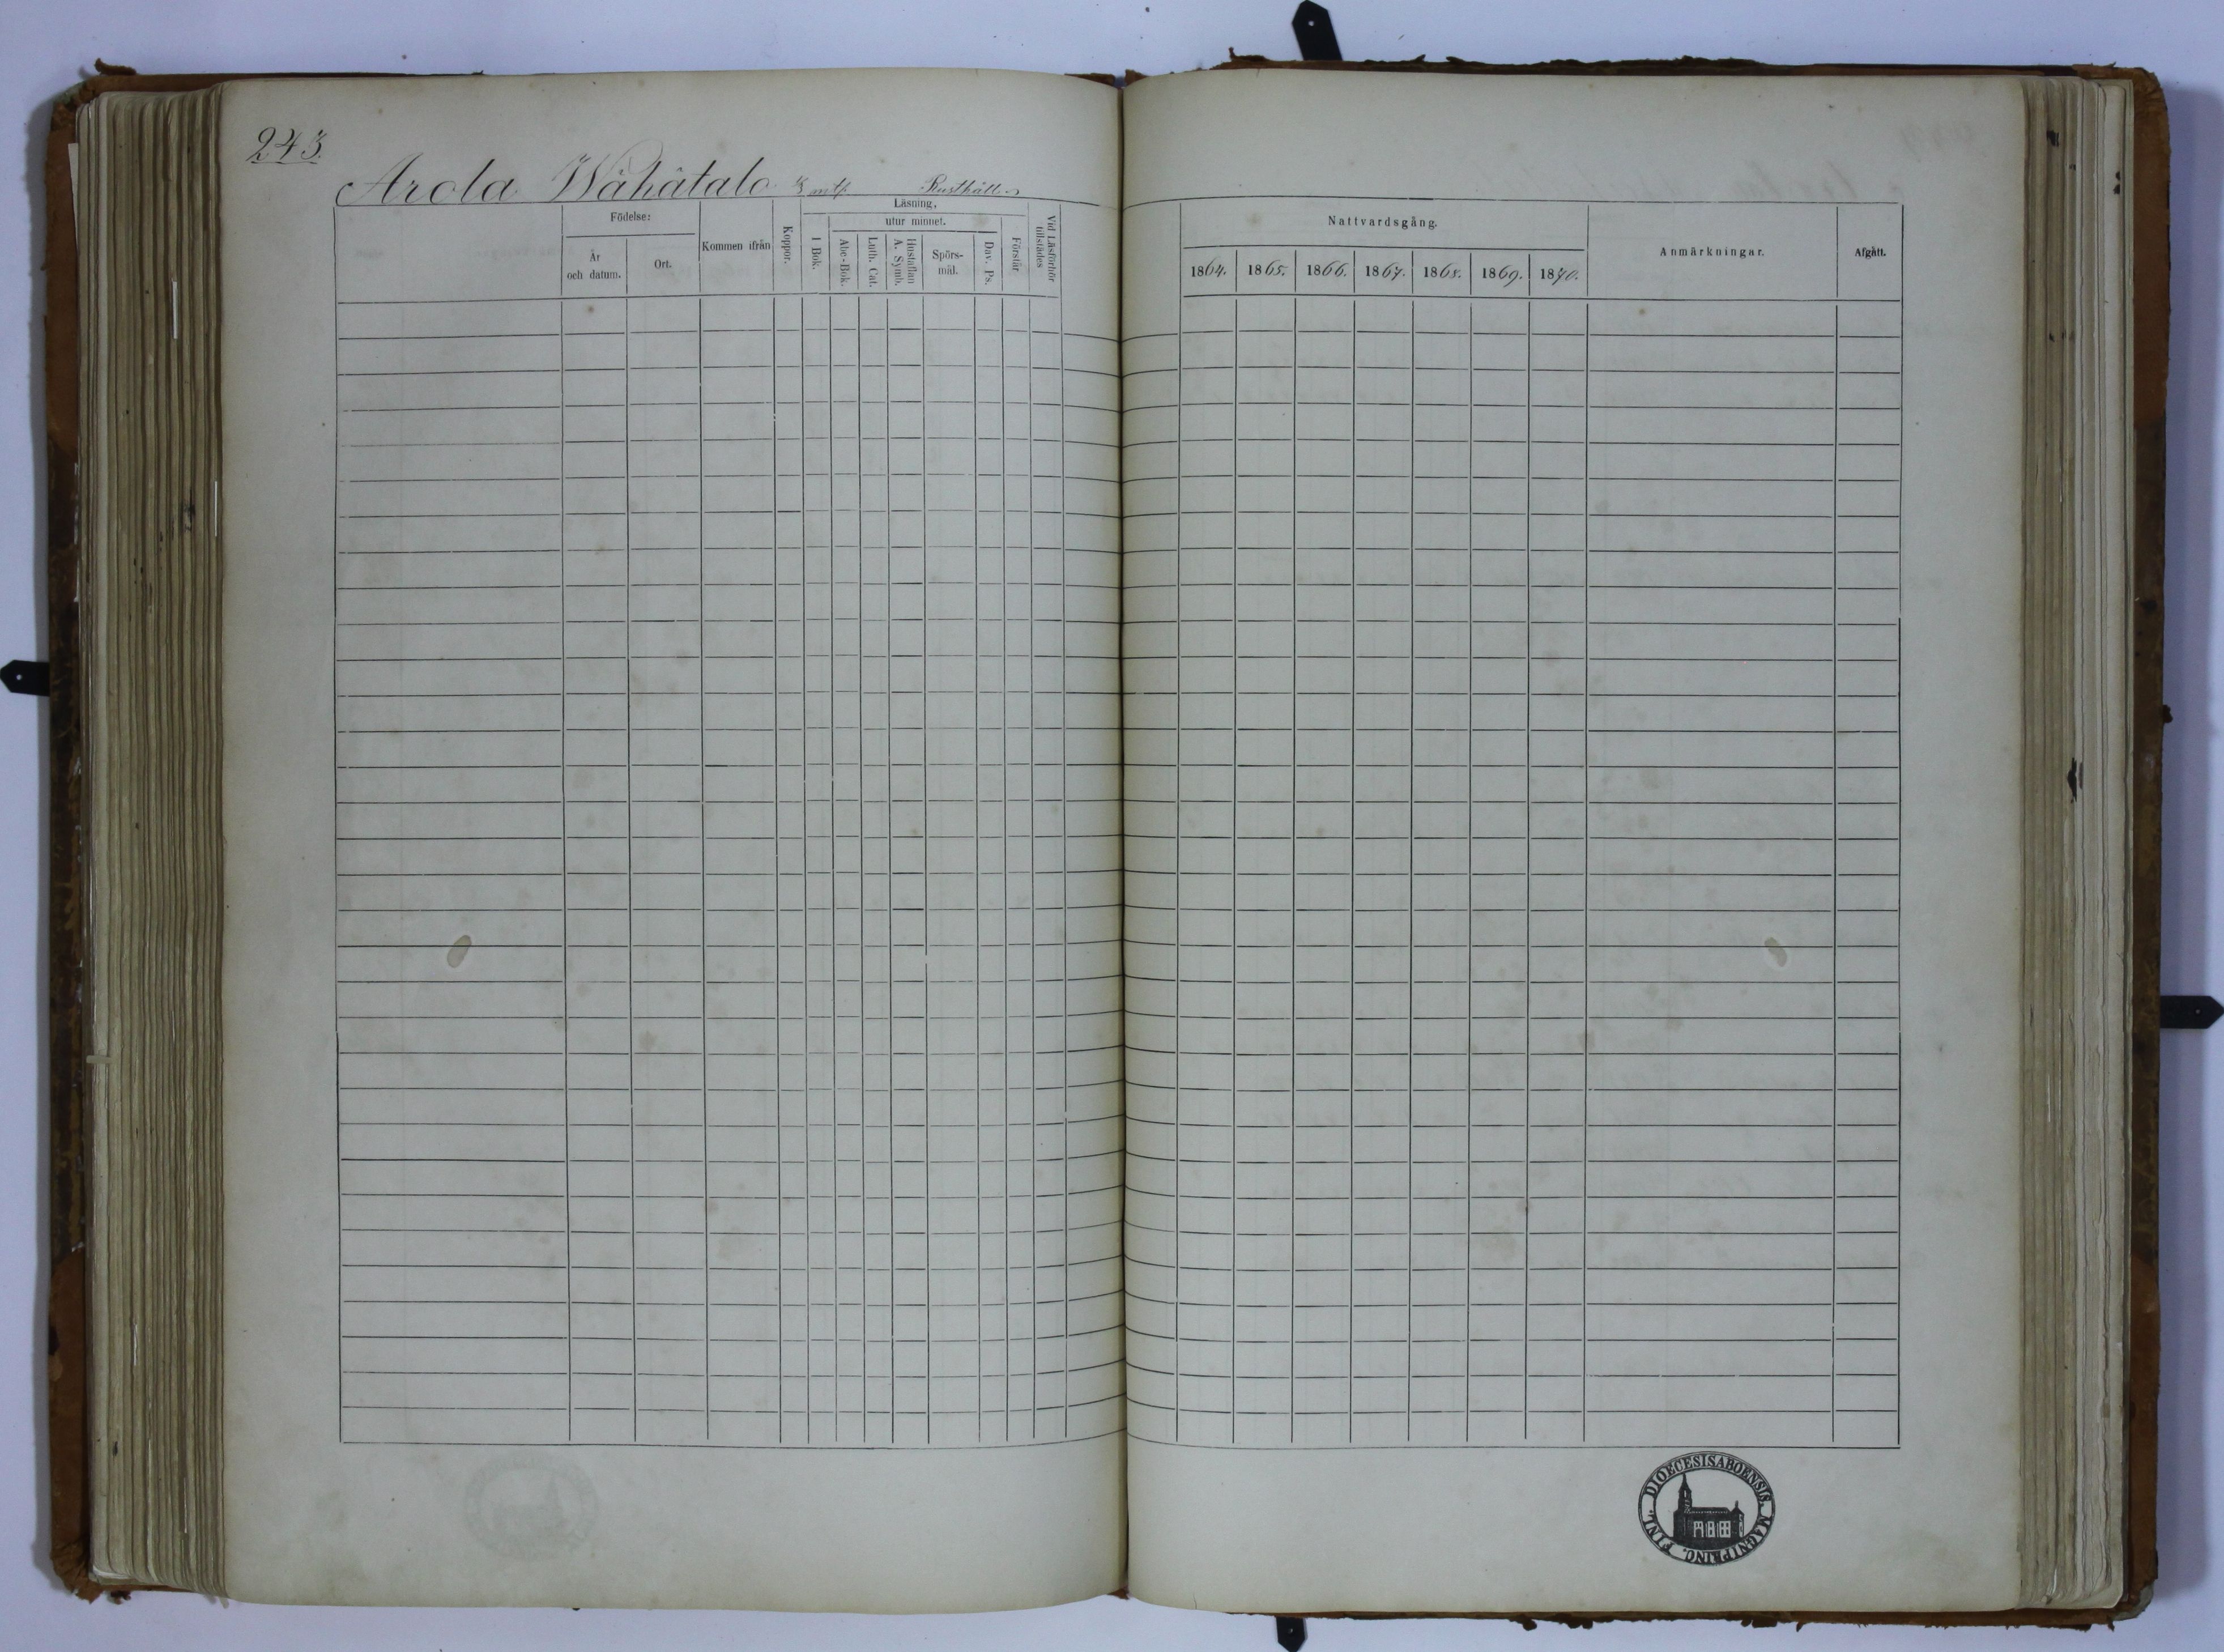 243.
Arola Wähätalo mtl. Rusthåll
Födelse:
År
och datum.
Ort.
Kommen ifrån
Koppor.
Läsning,
utur minnet.
I Bok.
Abc-Bok.
Luth. Cat.
Hustaflan
A. Symb.
Spörs-
mål.
Dav. Ps.
Förstår
Vid Läsförhör
tillstädes
Nattvardsgång.
1864. 1865. 1866. 1867. 1868. 1869. 1870.
Anmärkningar.
Afgått.
DIOECESIS ABOENSIS. MAGNI PRINC. FINL.